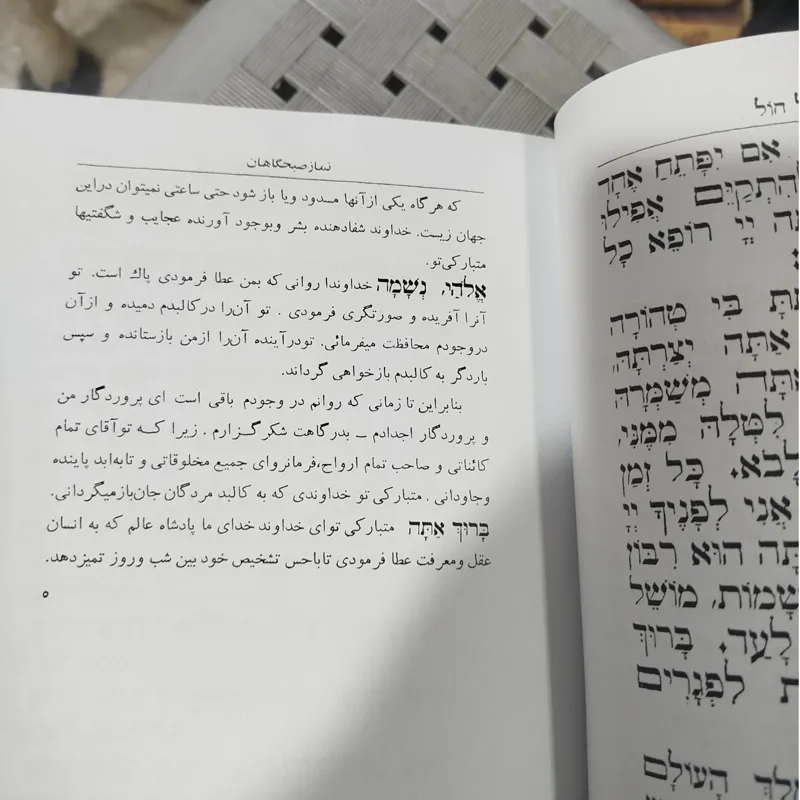 חול
אִם יִפָּתֵחַ אֶחָד
יְיָ רוֹפֵא כָל
בִּי טְהוֹרָה
אַתָּה יְצַרְתָּהּ,
מְשַׁמְּרָהּ
מִמֶּנִּי,
כָּל זְמַן
אֲנִי לְפָנֶיךָ יְיָ
הוּא רִבּוֹן
מוֹשֵׁל
לָעַד. בָּרוּךְ
לִפְגָרִים
הָעוֹלָם
نمازصبحگاهان
که هرگاه یکی ازآنها مسدود ویا باز شود حتی ساعتی نمیتوان دراین
جهان زیست. خداوند شفادهنده بشر وبوجود آورنده عجایب و شگفتیها
متبارکی‌تو.
אֱלֹהַי, נְשָׁמָה خداوندا روانی که بمن عطا فرمودی پاك است. تو
آنرا آفریده و صورتگری فرمودی . تو آن‌را درکالبدم دمیده و ازآن
دروجودم محافظت میفرمائی. تودرآینده آن‌را ازمن بازستانده و سپس
باردگر به کالبدم بازخواهی گرداند.
بنابراین تا زمانی که روانم در وجودم باقی است ای پروردگار من
و پروردگار اجدادم ــ بدرگاهت شکرگزارم . زیرا که توآقای تمام
کائناتی و صاحب تمام ارواح،فرمانروای جمیع مخلوقاتی و تابه‌ابد پاینده
وجاودانی . متبارکی تو خداوندی که به کالبد مردگان جان‌بازمیگردانی.
בָּרוּךְ אַתָּה متبارکی توای خداوند خدای ما پادشاه عالم که به انسان
عقل ومعرفت عطا فرمودی تاباحس تشخیص خود بین شب وروز تمیزدهد.
۵